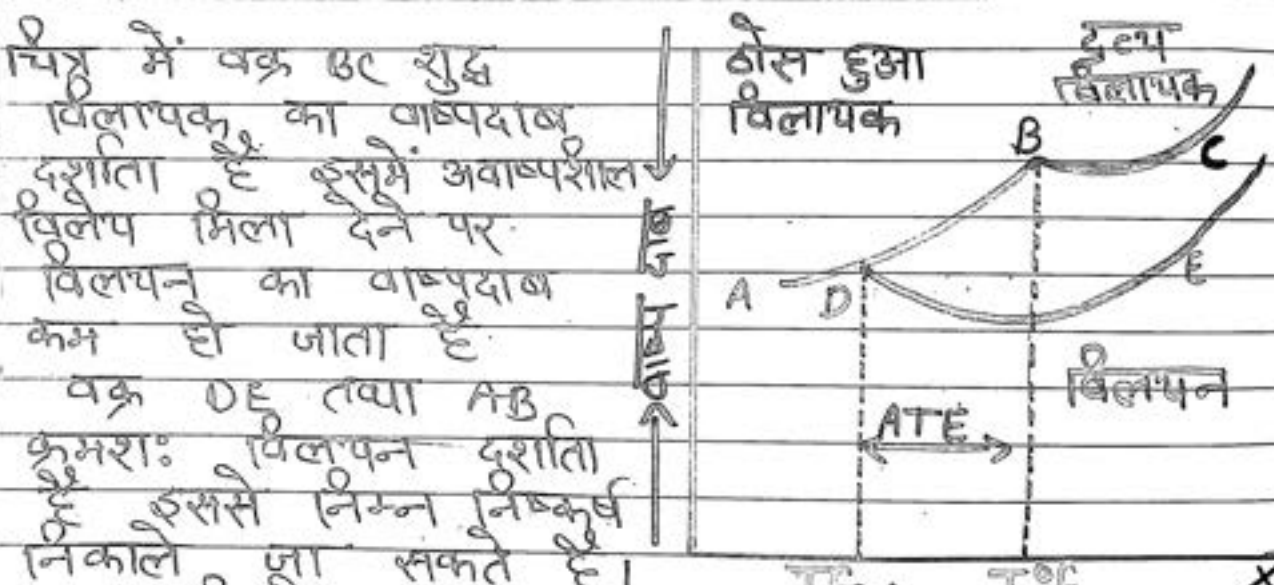 चित्र में वक्र BC शुद्ध
विलायक का वाष्पदाब
दर्शाता है इसमें अवाष्पशील
विलेय मिला देने पर
विलयन का वाष्पदाब
कम हो जाता है
वक्र DE तथा AB
क्रमशः विलयन दर्शाता
है इससे निम्न निष्कर्ष
निकाले जा सकते है।
वाष्प दाब
ठोस हुआ
विलायक
द्रव्य
विलायक
B
C
A
D
E
विलयन
ATE